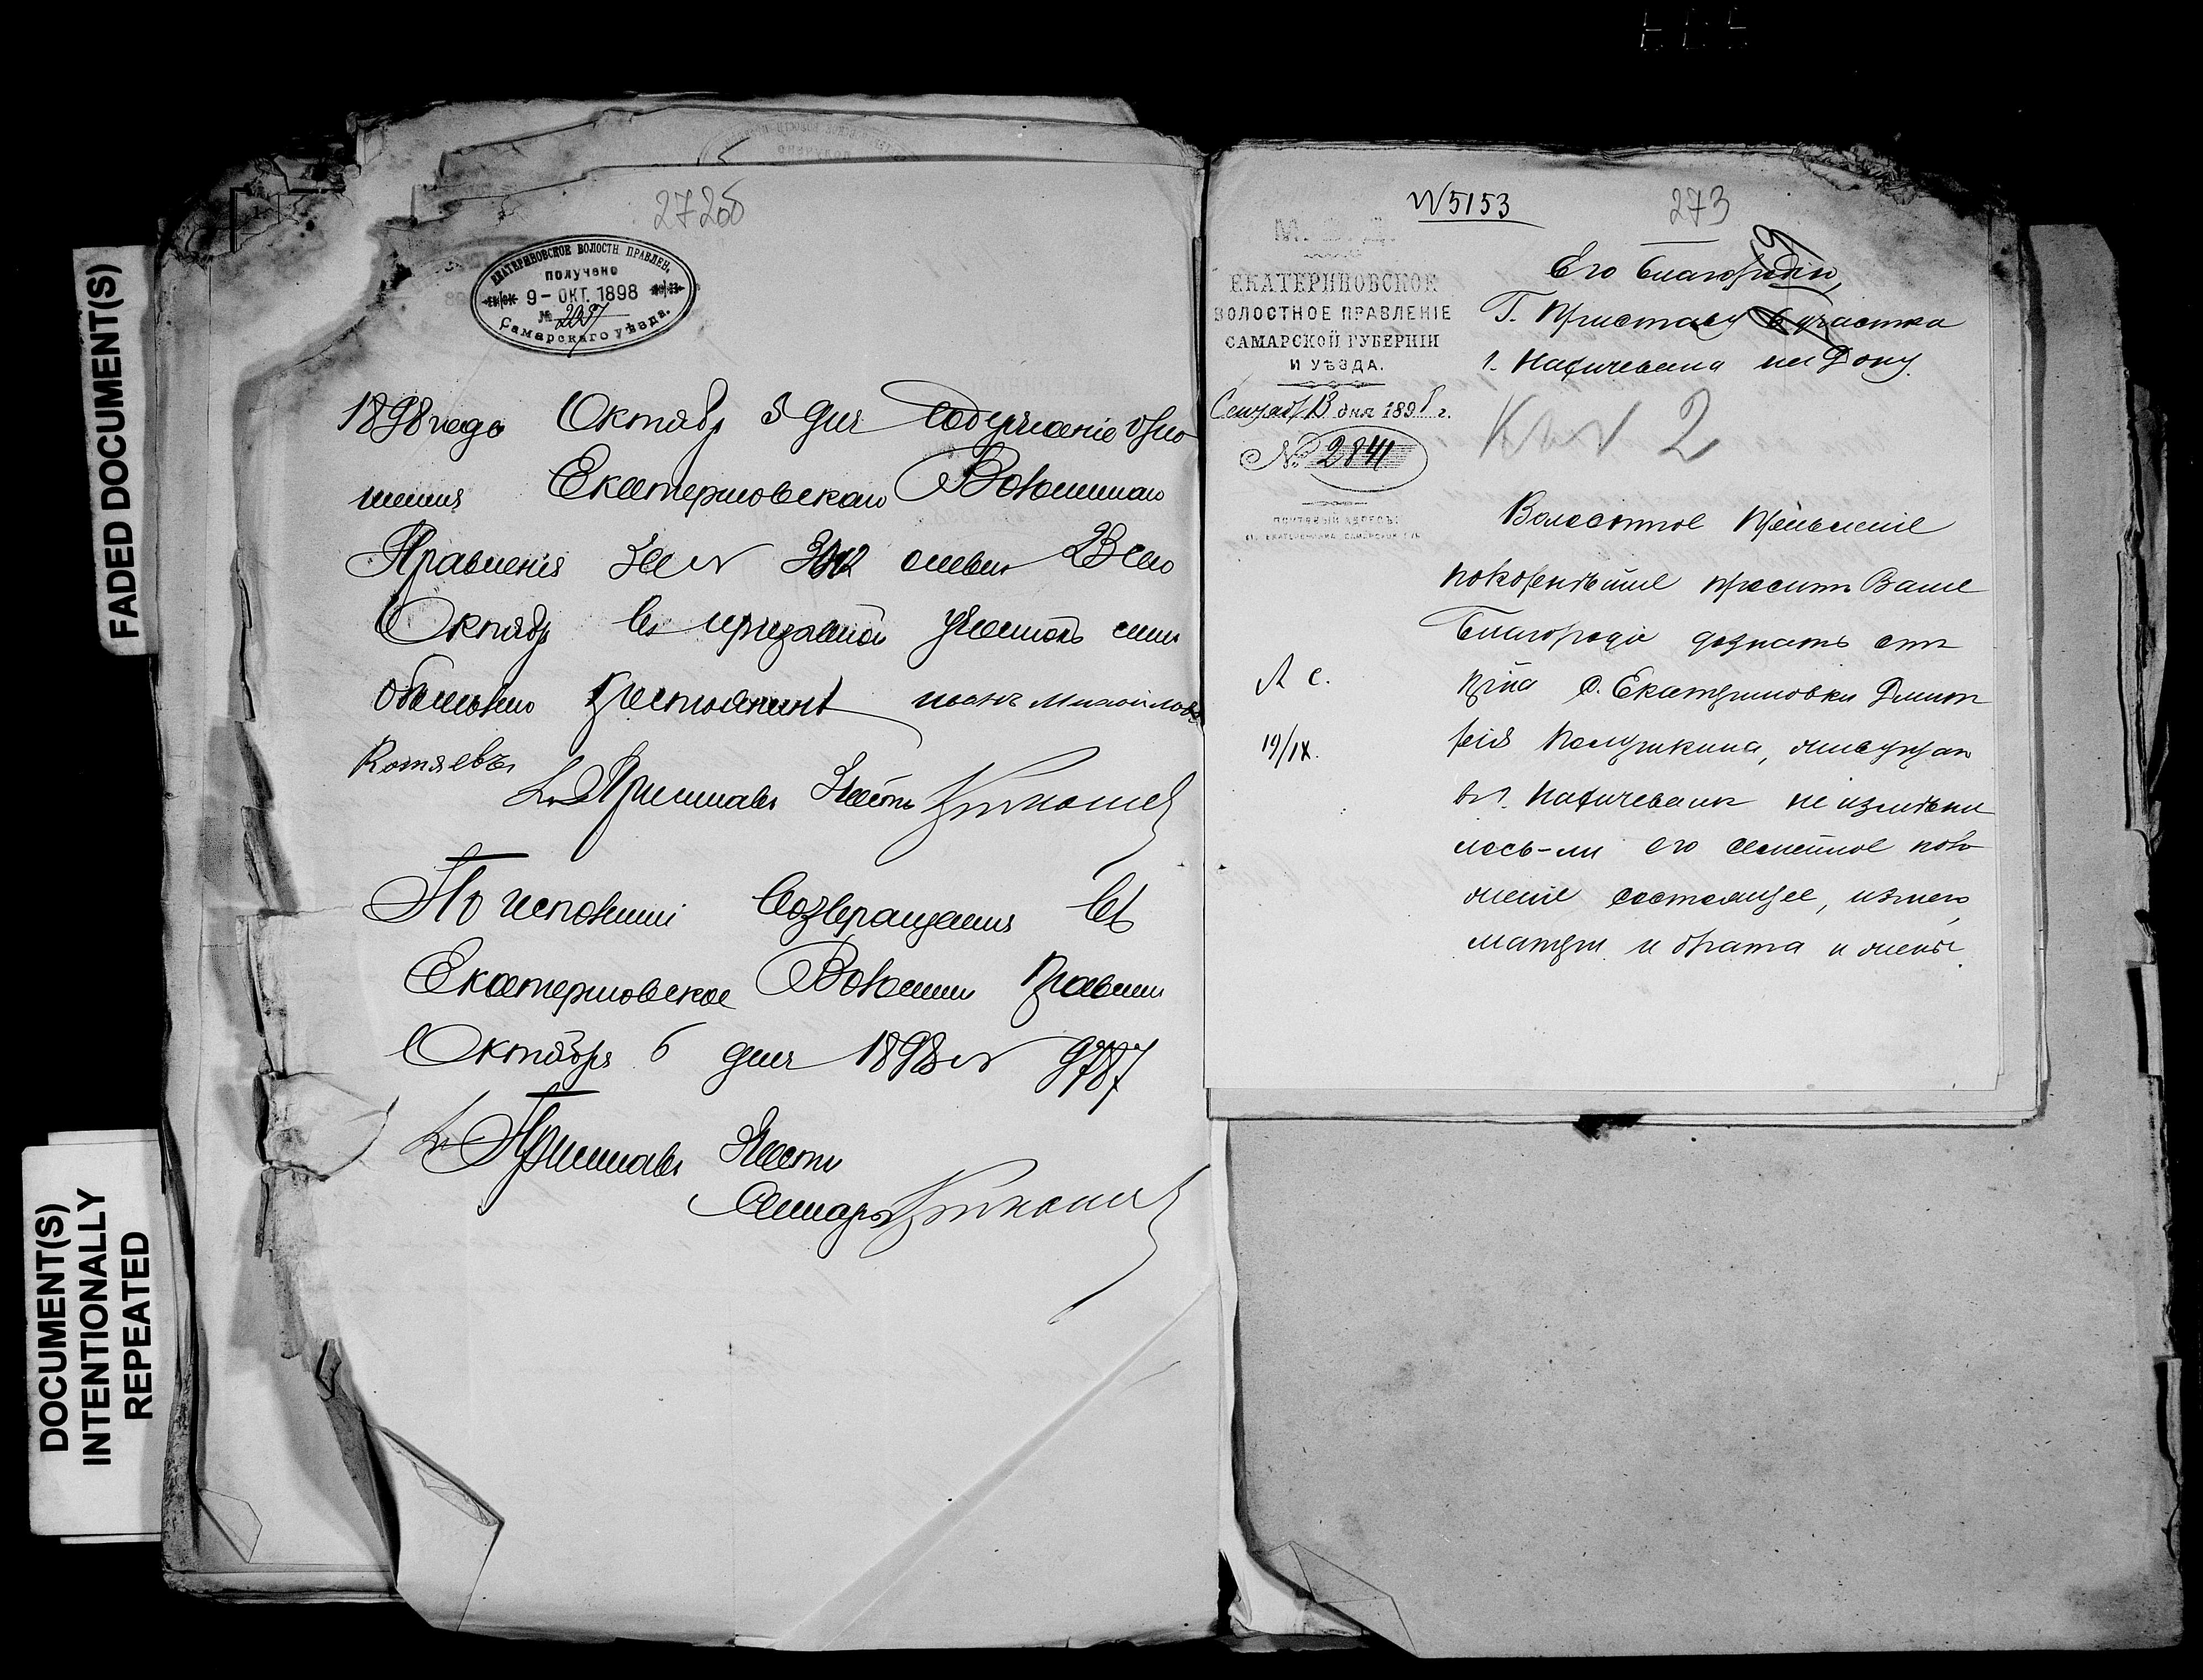 FADED DOCUMENT(S)
DOCUMENT(S)
INTENTIONALLY
REPEATED
272об
ЕКАТЕРИНОВСКОЕ ВОЛОСТН. ПРАВЛЕН.
получено
9 – ОКТ. 1898
№
Самарскаго уѣзда.
1898 года Октябр 5 дня Содержаніе отно
шения Екатериновскаго Волостного
Правления за № 3012 объявл
Октябр въ призывной участокъ
объявлено крестьянинъ иванъ Михаиловъ
Котяевъ
Приставъ Части
По исполнении возвращается въ
Екатериновское Волостн Правлени
Октября 6 дня 1898 № 9787
Приставъ Части
№ 5153
273
ЕКАТЕРИНОВСКОЕ
ВОЛОСТНОЕ ПРАВЛЕНІЕ
САМАРСКОЙ ГУБЕРНІИ
И УѢЗДА.
Сентяб 13 дня 1898 г.
№ 2841
ПОЧТОВЫЙ АДРЕСЪ:
Его Благородію,
Г. Приставу участка
г. Нахичевана на Дону.
2
Волостное Правленіе
покорнѣйше проситъ Ваше
Благородіе дознать отъ
кр-на с. Екатериновки Дмит
рія Полушкина, живущаго
въ г. Нахичевани не измѣни
лось-ли его семейное поло
женіе состоящее, изъ него,
матери и брата и жены.
Л с.
19/IX.